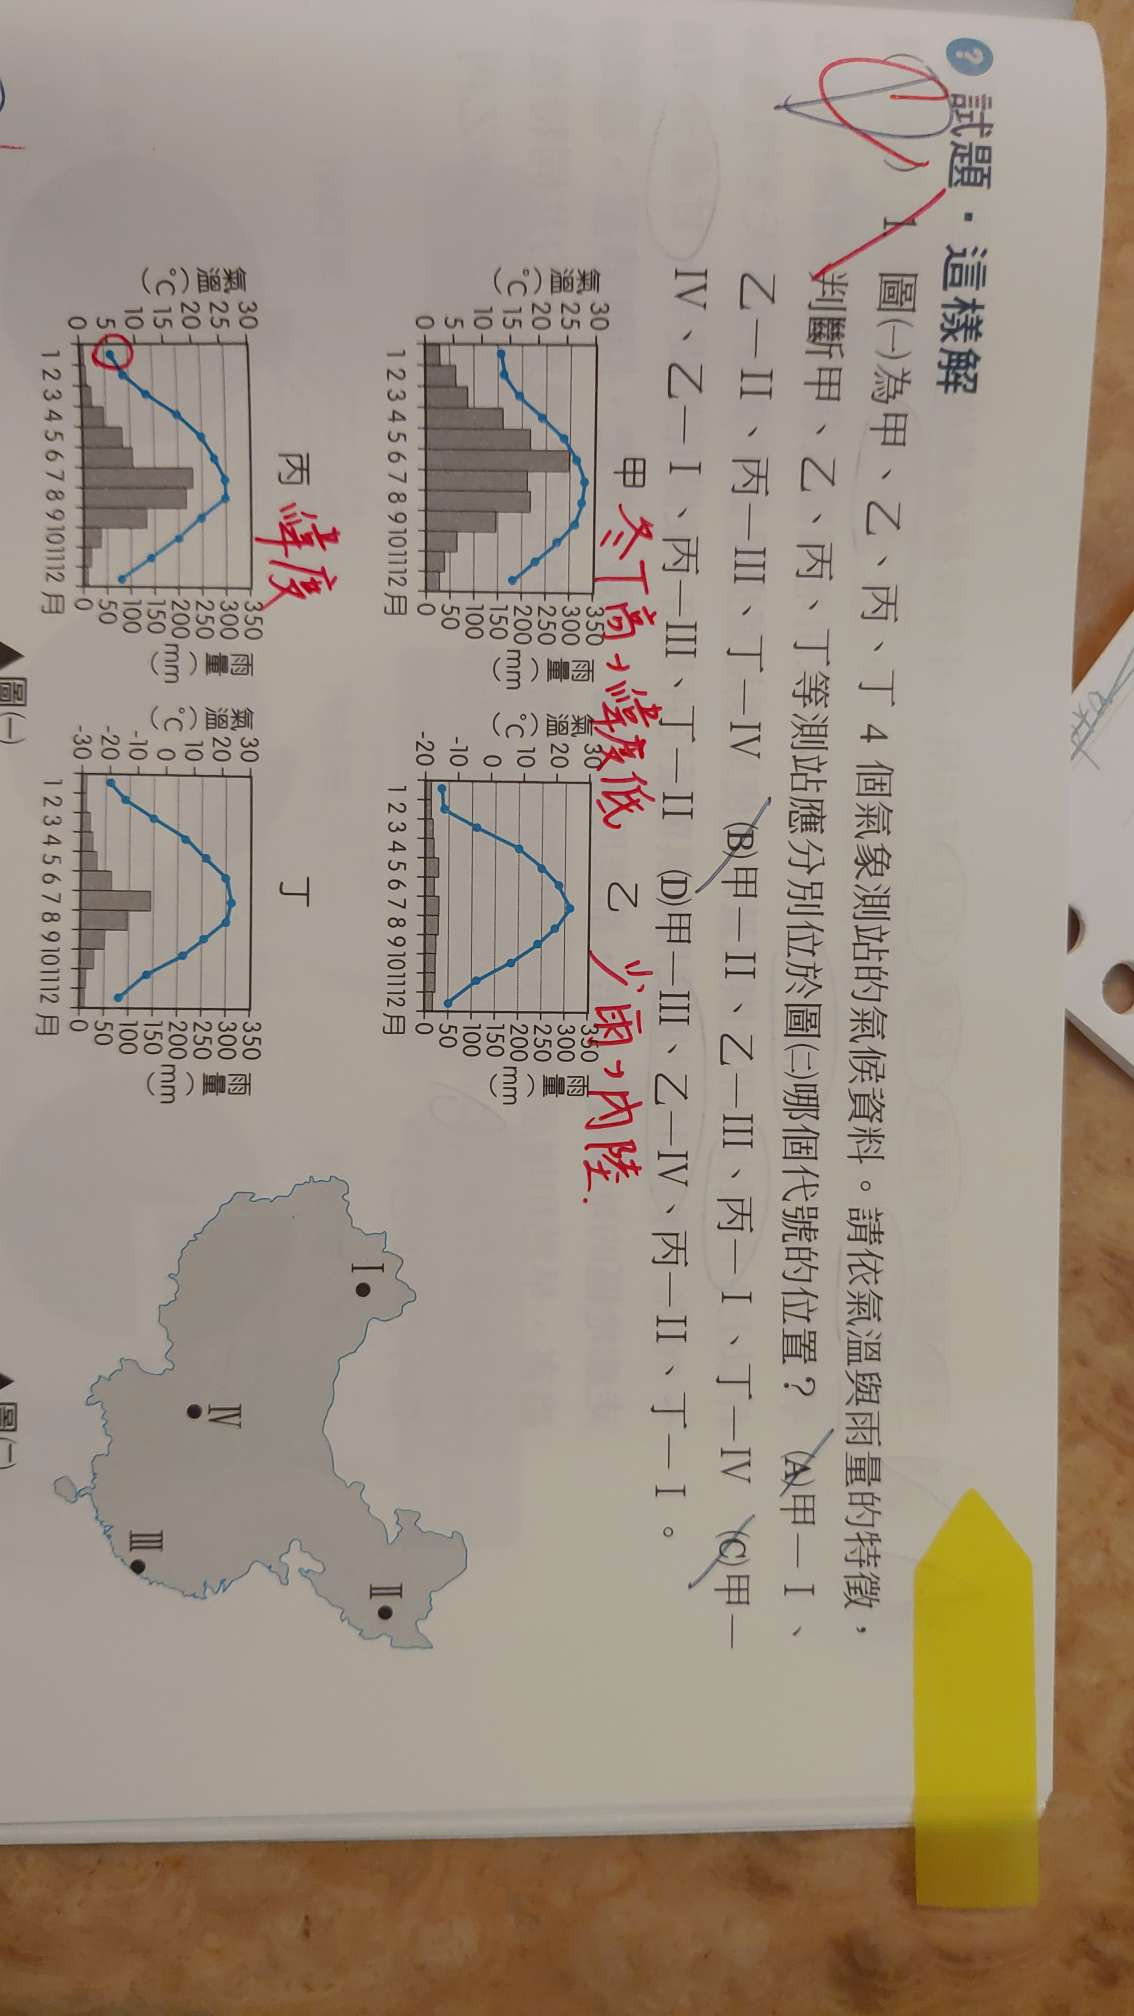 ? 試題・這樣解
( D ) 1. 圖㈠為甲、乙、丙、丁 4 個氣象測站的氣候資料。請依氣溫與雨量的特徵，
判斷甲、乙、丙、丁等測站應分別位於圖㈡哪個代號的位置？ (A)甲－I、
乙－II、丙－III、丁－IV (B)甲－II、乙－III、丙－I、丁－IV (C)甲－
IV、乙－I、丙－III、丁－II (D)甲－III、乙－IV、丙－II、丁－I。
甲 冬丁高，緯度低
氣溫(℃)
30
25
20
15
10
5
0
350
300
250
200
150
100
50
0
雨量(mm)
1 2 3 4 5 6 7 8 9 10 11 12 月
乙 少雨，內陸.
氣溫(℃)
30
20
10
0
-10
-20
350
300
250
200
150
100
50
0
雨量(mm)
1 2 3 4 5 6 7 8 9 10 11 12 月
丙 緯度
氣溫(℃)
30
25
20
15
10
5
0
350
300
250
200
150
100
50
0
雨量(mm)
1 2 3 4 5 6 7 8 9 10 11 12 月
丁
氣溫(℃)
30
20
10
0
-10
-20
-30
350
300
250
200
150
100
50
0
雨量(mm)
1 2 3 4 5 6 7 8 9 10 11 12 月
I
II
IV
III
▲圖㈠
▲圖㈡